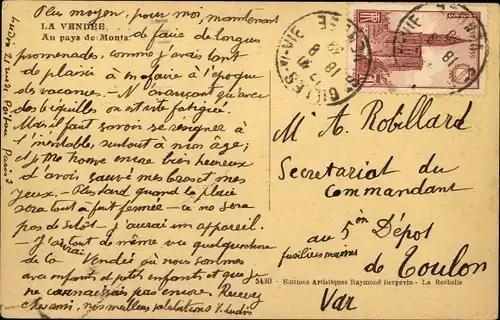 Plus moyen, pour moi, maintenant
LA VENDÉE
Au pays de Monts
de faire de longues
promenades, comme j'avais tant
de plaisir à en faire à l'époque
des vacances. — N'avançant qu'avec
des béquilles on est vite fatigué.
Mais il faut savoir se résigner à
l'inévitable, surtout à mon âge;
et je me trouve encore bien heureux
d'avoir sauvé mes bras et mes
yeux. — Plus tard quand la plaie
sera tout à fait fermée — ce ne sera
pas de sitôt — j'aurai un appareil.
— J'aurai tout de même vu quelque chose
de la Vendée où nous sommes
avec enfants et petits enfants et que je
ne connaissais pas encore. Recevez
cher ami, nos meilleures salutations
GILLES-S-VIE
18 8
39
M. A. Robillard
Secretariat du
Commandant
au 5en Dépôt
fusiliers marins
de Toulon
Var
5430 - Editions Artistiques Raymond Bergevin - La Rochelle